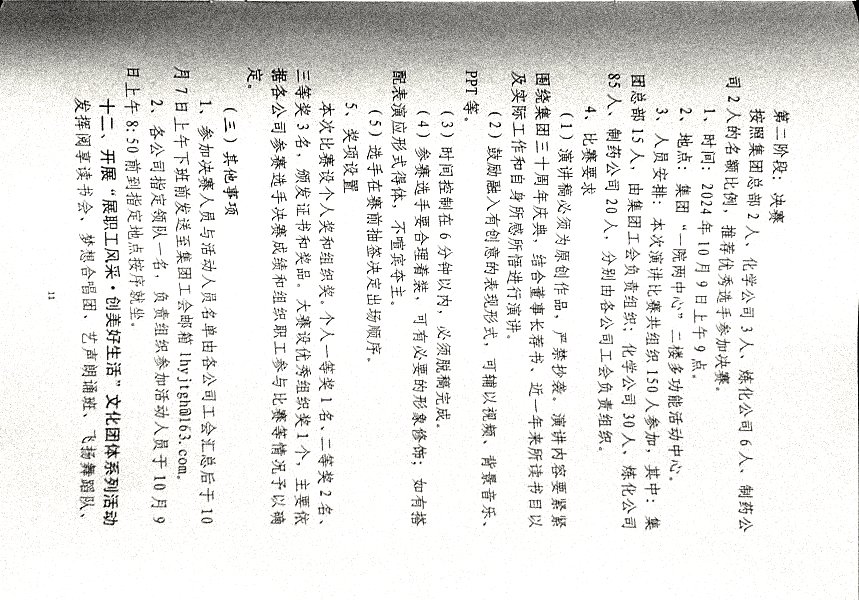 第二阶段：决赛
按照集团总部 2 人、化学公司 3 人、炼化公司 6 人、制药公
司 2 人的名额比例，推荐优秀选手参加决赛。
1、时间：2024 年 10 月 9 日上午 9 点。
2、地点：集团“一院两中心”二楼多功能活动中心。
3、人员安排：本次演讲比赛共组织 150 人参加，其中：集
团总部 15 人，由集团工会负责组织；化学公司 30 人、炼化公司
85 人、制药公司 20 人，分别由各公司工会负责组织。
4、比赛要求
（1）演讲稿必须为原创作品，严禁抄袭。演讲内容要紧紧
围绕集团三十周年庆典，结合董事长荐书、近一年来所读书目以
及实际工作和自身所感所悟进行演讲。
（2）鼓励融入有创意的表现形式，可辅以视频、背景音乐、
PPT 等。
（3）时间控制在 6 分钟以内，必须脱稿完成。
（4）参赛选手要合理着装，可有必要的形象修饰；如有搭
配表演应形式得体，不喧宾夺主。
（5）选手在赛前抽签决定出场顺序。
5、奖项设置
本次比赛设个人奖和组织奖。个人一等奖 1 名、二等奖 2 名、
三等奖 3 名，颁发证书和奖品。大赛设优秀组织奖 1 个，主要依
据各公司参赛选手决赛成绩和组织职工参与比赛等情况予以确
定。
（三）其他事项
1、参加决赛人员与活动人员名单由各公司工会汇总后于 10
月 7 日上午下班前发送至集团工会邮箱 lhyjtgh@163.com。
2、各公司指定领队一名，负责组织参加活动人员于 10 月 9
日上午 8:50 前到指定地点按序就坐。
十二、开展“展职工风采·创美好生活”文化团体系列活动
发挥阅享读书会、梦想合唱团、艺声朗诵班、飞扬舞蹈队、
11